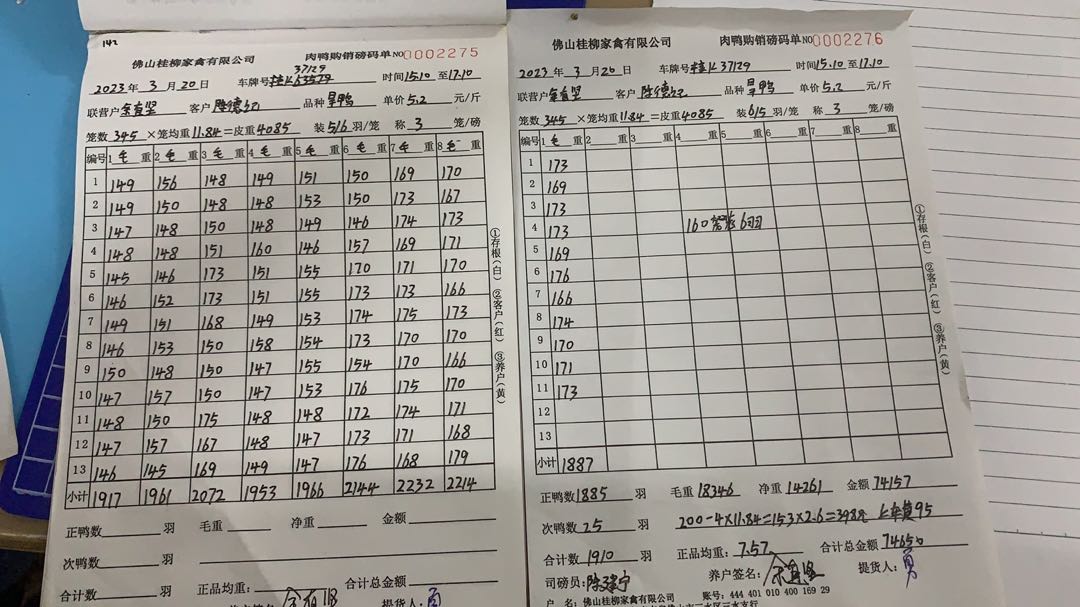 142
佛山桂柳家禽有限公司 肉鸭购销磅码单 NO 0002275
37129
2023年 3月 20日 车牌号 桂K53579 时间15.10 至17.10
联营户 余宜坚 客户 陈德记 品种 旱鸭 单价5.2 元/斤
笼数 345 ×笼均重11.84=皮重4085 装5/6羽/笼 称 3 笼/磅
编号 1毛 重 2毛 重 3毛 重 4毛 重 5毛 重 6毛 重 7毛 重 8毛 重
1 149 156 148 149 151 150 169 170
2 149 150 148 148 153 150 173 167
3 147 148 150 148 149 146 174 173
4 148 148 151 160 146 157 169 171
5 145 146 173 151 155 170 171 170
6 146 152 173 151 155 173 173 166
7 149 151 168 149 153 174 175 173
8 146 153 150 158 154 173 170 170
9 150 148 150 147 155 154 170 166
10 147 157 150 147 153 176 175 170
11 148 150 175 148 148 172 174 171
12 147 157 167 148 147 173 171 168
13 146 145 169 149 147 176 168 179
小计 1917 1961 2072 1953 1966 2144 2232 2214
正鸭数 羽 毛重 净重 金额
次鸭数 羽
合计数 羽 正品均重: 合计总金额
提货人:
①存根(白) ②客户(红) ③养户(黄)
佛山桂柳家禽有限公司 肉鸭购销磅码单 NO 0002276
2023年 3月 20日 车牌号 桂K37129 时间15.10 至17.10
联营户 余宜坚 客户 陈德记 品种 旱鸭 单价5.2 元/斤
笼数 345 ×笼均重11.84=皮重4085 装6/5羽/笼 称 3 笼/磅
编号 1 重 2 重 3 重 4 重 5 重 6 重 7 重 8 重
1 173
2 169
3 173
4 173 160笼装6羽
5 169
6 176
7 166
8 174
9 170
10 171
11 173
12
13
小计 1887
正鸭数1885 羽 毛重 18346 净重 14261 金额 74157
次鸭数 25 羽 200-4×11.84=153×2.6=398元 上车费95
合计数 1910 羽 正品均重: 7.57 合计总金额 74650
司磅员: 养户签名: 余宜坚 提货人:
户 名: 佛山桂柳家禽有限公司 账号: 444 401 010 400 169 29
①存根(白) ②客户(红) ③养户(黄)